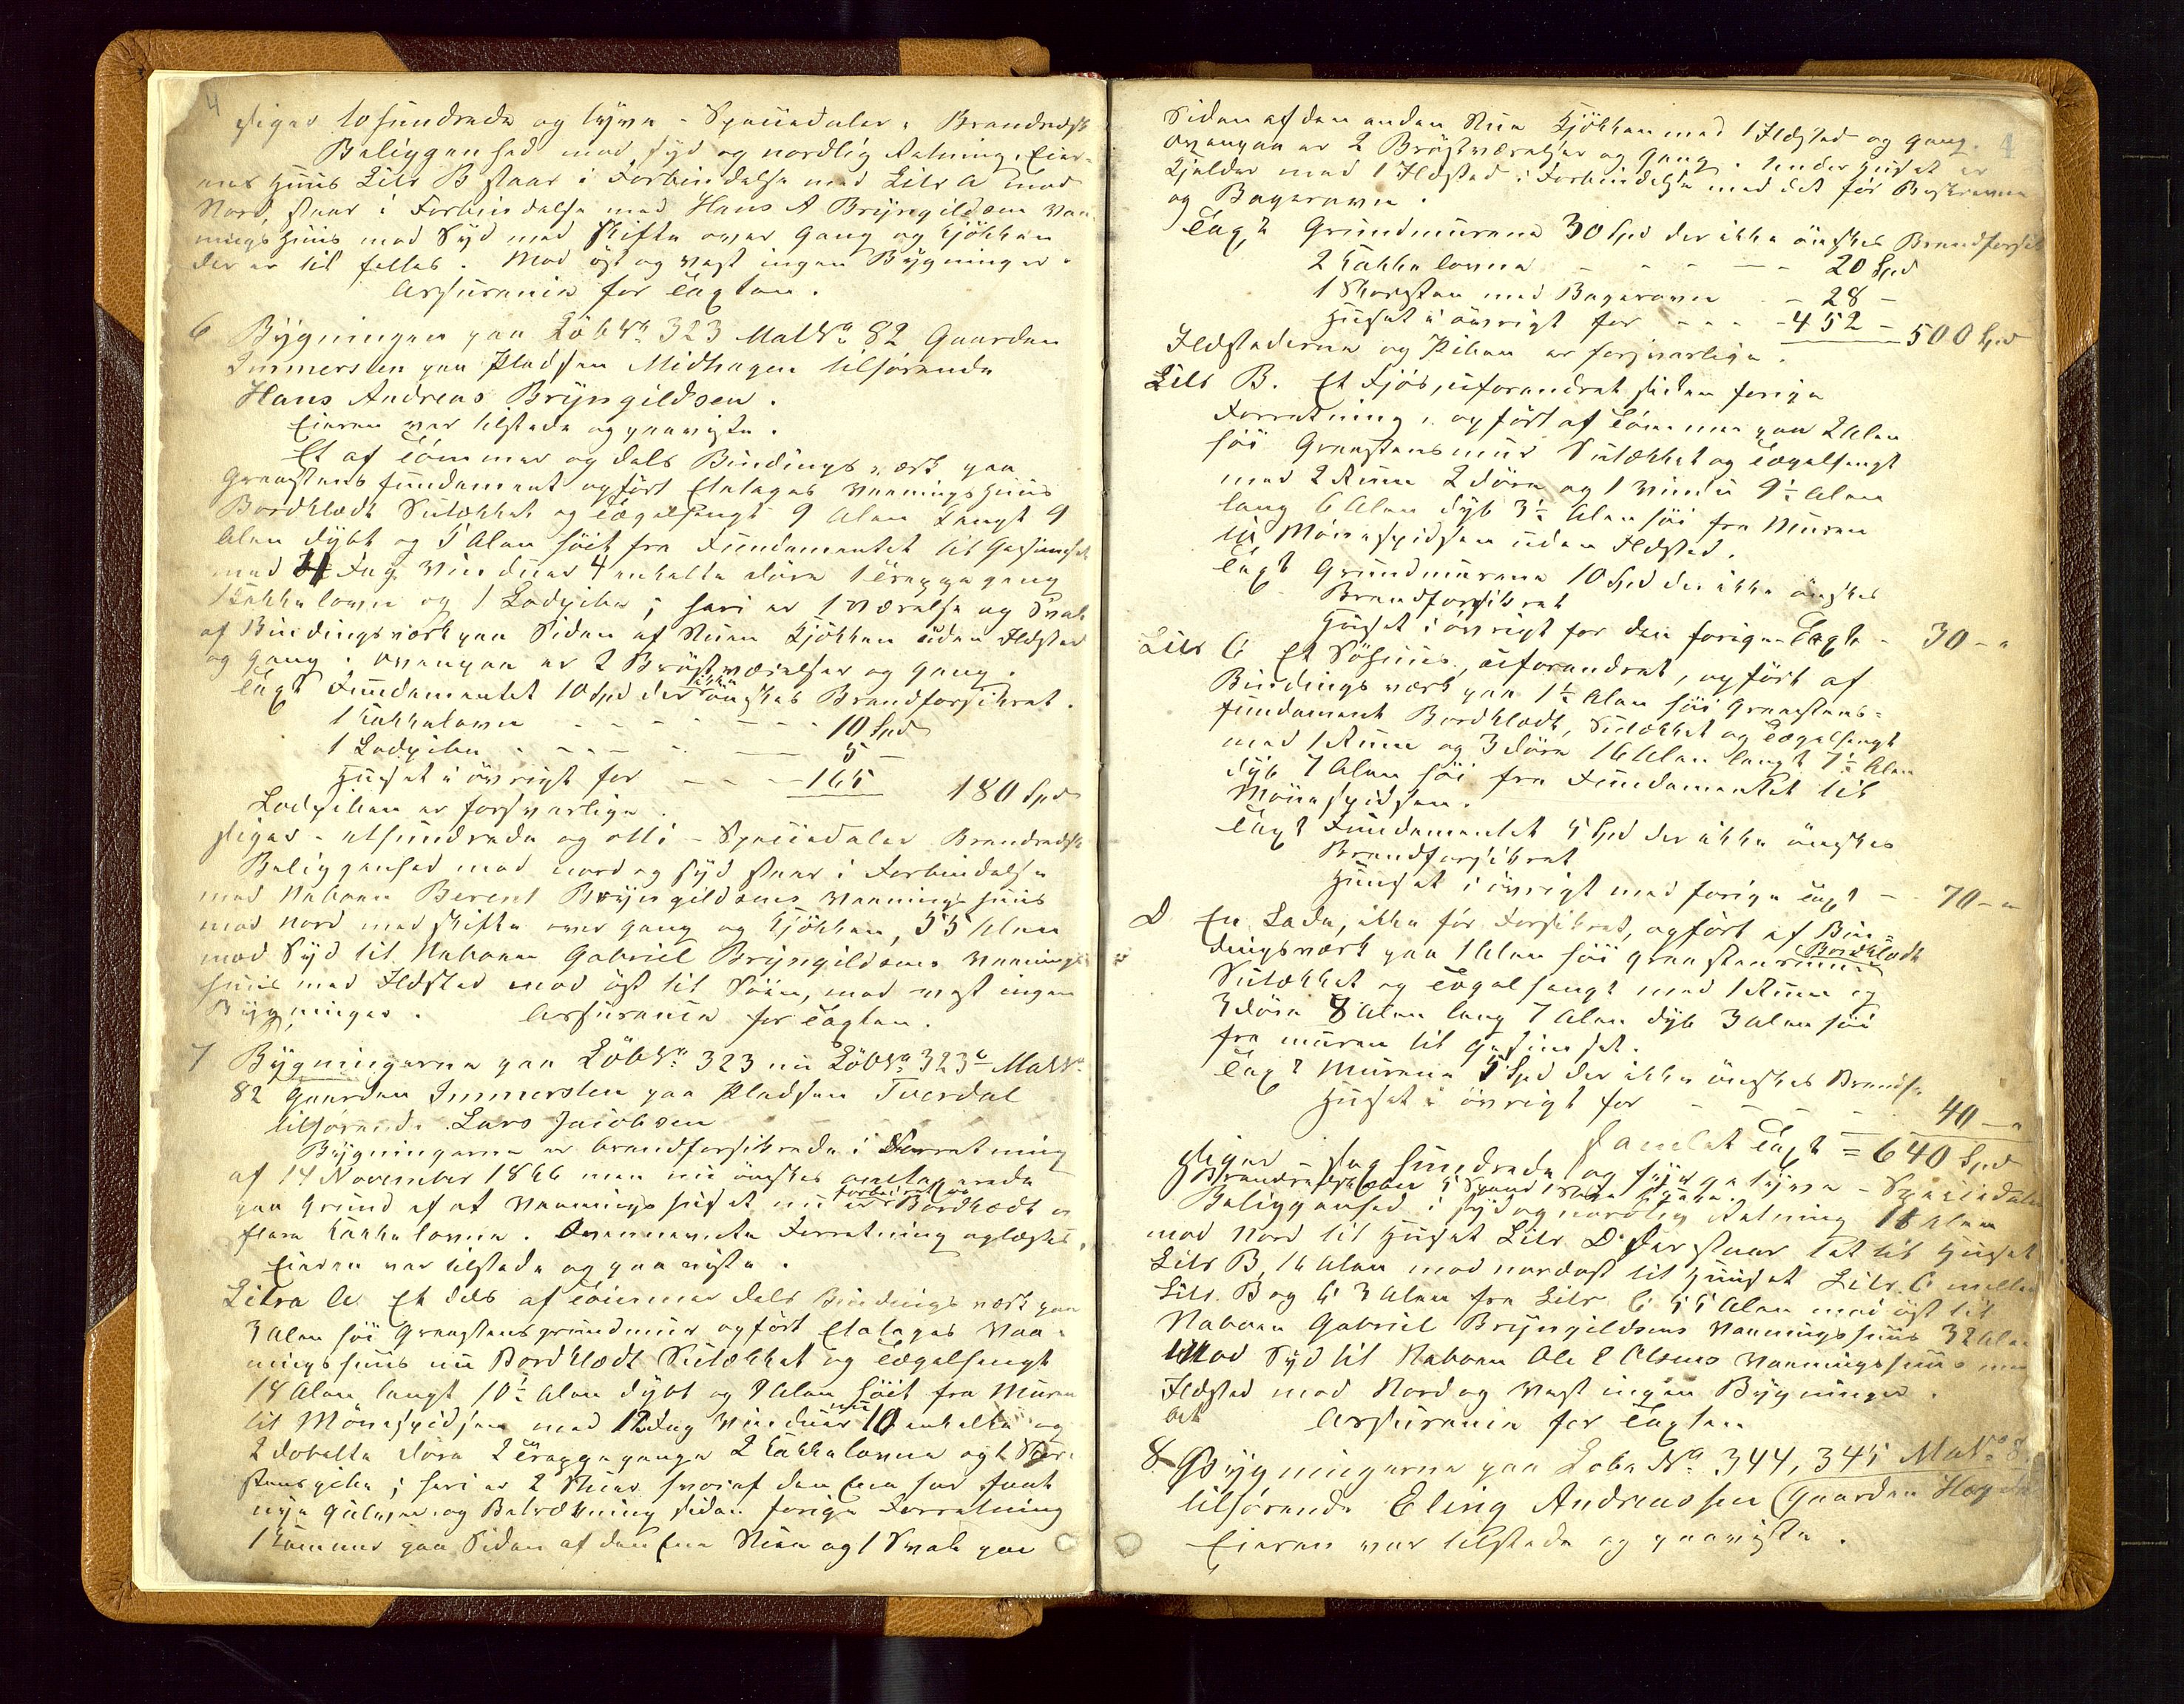 4
siges tohundrede og tyve - Speciedaler. Brandredsk
Beliggenhed mod syd og nordlig Retning. Eier-
nes Huus Litr B staar i Forbindelse med Litr A mod
Nord, staar i Forbindelse med Hans A Bryngildsen Vaa-
ningshuus mod Syd med Skifte over Gang og Kjøkken
der er til felles. Mod øst og vest ingen Bygninger.
Assurance for Taxten.
6 Bygningen paa LøbNo 323 MatNo 82 Gaarden
Immersten paa Pladsen Midhagen tilhørende
Hans Andreas Bryngildsen.
Eieren var tilstede og paaviste.
Et af Tømmer og dels Bindingsverk paa
Graastens fundament opført Etetages Vaaningshuus
Bordklædt Sutækket og Tegelhengt 9 Alen Langt 9
Alen dybt og 5 Alen høit fra Fundamentet til Gesimset
med 4 Fag Vinduer 4 enkelte Døre 1 Trappegang
1 Kakkelovn og 1 Lodpibe; heri er 1 Værelse og Sval
af Bindingsverk paa Siden af Stuen Kjøkken uden Ildsted
og Gang. Ovenpaa er 2 Brystværelser og Gang.
Taxt Fundamentet 10 Spd der ikke ønskes Brandforsikret.
1 Kakkelovn - - - - - 10 Spd
1 Lodpibe - - - - - 5 -
Huset i øvrigt for - - - 165 180 Spd
Lodpiben er forsvarlige.
siges - ethundrede og otti - Speciedaler Brandredsk
Beliggenhed mod nord og syd staar i Forbindelse
med Naboen Berent Bryngildsens Vaaningshuus
mod Nord med Skifte over Gang og Kjøkken, 55 Alen
mod Syd til Naboen Gabriel Bryngildsens Vaanings-
huus med Ildsted mod øst til Søen, mod vest ingen
Bygninger. Assurance for Taxten.
7 Bygningerne paa LøbNo 323 nu LøbNo 323c MatNo
82 Gaarden Immersten paa Pladsen Tverdal
tilhørende Lars Jacobsen
Bygningerne er brandforsikrede i Forretning
af 14 November 1866 men nu ønskes omtaxerede
paa Grund af at Vaaningshuset nu er forbedret Bordklædt
flere Kakkelovne. Ovennevnte Forretning oplæstes.
Eieren var tilstede og paaviste.
Litra A Et dels af Tømmer dels Bindingsverk paa
3 Alen høi Graastensgrundmur opført Etetages Vaa-
ningshuus nu Bordklædt Sutækket og Tegelhengt
18 Alen langt 10½ Alen dybt og 8 Alen høit fra Muren
til Mønespidsen med 12 Fag Vinduer 10 enkelte og
2 dobelte Døre 2 Trappegange 2 Kakkelovne og 1 Skor-
stenspibe; heri er 2 Stuer hvoraf den Ene har faaet
nye Gulver og Betrækning siden forige Forretning
1 Kammer paa Siden af den Ene Stue og 1 Sval paa
4
Siden af den anden Stue Kjøkken med 1 Ildsted og Gang.
ovenpaa er 2 Brystværelser og Gang. Under Huset er
Kjelder med 1 Ildsted i Forbindelse med det før Beskrevne
og Bagerovn.
Taxt Grundmurene 30 Spd der ikke ønskes Brandforsik
2 Kakkelovne - - - - 20 Spd
1 Skorsten med Bagerovn - 28 -
Huset i øvrigt for - - - 452 - 500 Spd
Ildstederne og Piben er forsvarlige.
Litr B. Et Fjøs, uforandret siden forige
Forretning, opført af Tømmer paa 2 Alen
høi Graastensmur Sutækket og Tegelhengt
med 2 Rum 2 Døre og 1 Vindu 9½ Alen
lang 6 Alen dyb 3½ Alen høi fra Muren
til Mønespidsen uden Ildsted.
Taxt Grundmurene 10 Spd der ikke ønskes
Brandforsikret
Huset i øvrigt for den forige Taxt - 30 - "
Litr C Et Søhuus, uforandret, opført af
Bindingsverk paa 1½ Alen høi Graastens-
fundament Bordklædt, Sutækket og Tegelhengt
med 1 Rum og 3 Døre 16 Alen langt 7½ Alen
dyb 7 Alen høi fra Fundamentet til
Mønespidsen.
Taxt Fundamentet 5 Spd der ikke ønskes
Brandforsikret
Huuset i øvrigt med forige Taxt - 70 - "
D En Lade, ikke før Forsikret, opført af Bin-
dingsverk paa 1 Alen høi Graastensmuur Bordklædt
Sutækket og Tegelhengt med 1 Rum og
3 Døre 8 Alen lang 7 Alen dyb 3 Alen høi
fra muren til Gesimset.
Taxt Murene 5 Spd der ikke ønskes Brandf.
Huset i øvrigt for - - - - 40 - "
Samlet Taxt = 640 Spd
siges sex hundrede og fyrgetyve - Speciedaler
Beliggenhed i syd og nordlig Retning 18 Alen
mod Nord til Huset Litr D der staar tæt til Huset
Litr B, 16 Alen mod nordost til Huuset Litr. C mellem
Litr. B og C 3 Alen fra Litr C 55 Alen mod øst til
Naboen Gabriel Bryngildsens Vaaningshuus 32 Alen
Mod Syd til Naboen Ole E Olsens Vaaningshuus med
Ildsted mod Nord og Vest ingen Bygninger.
Assurance for Taxten
8 Bygningerne paa Løbe No 344, 345 MatNo 8
tilhørende Eling Andreassen (Gaarden
Eieren var tilstede og paaviste.